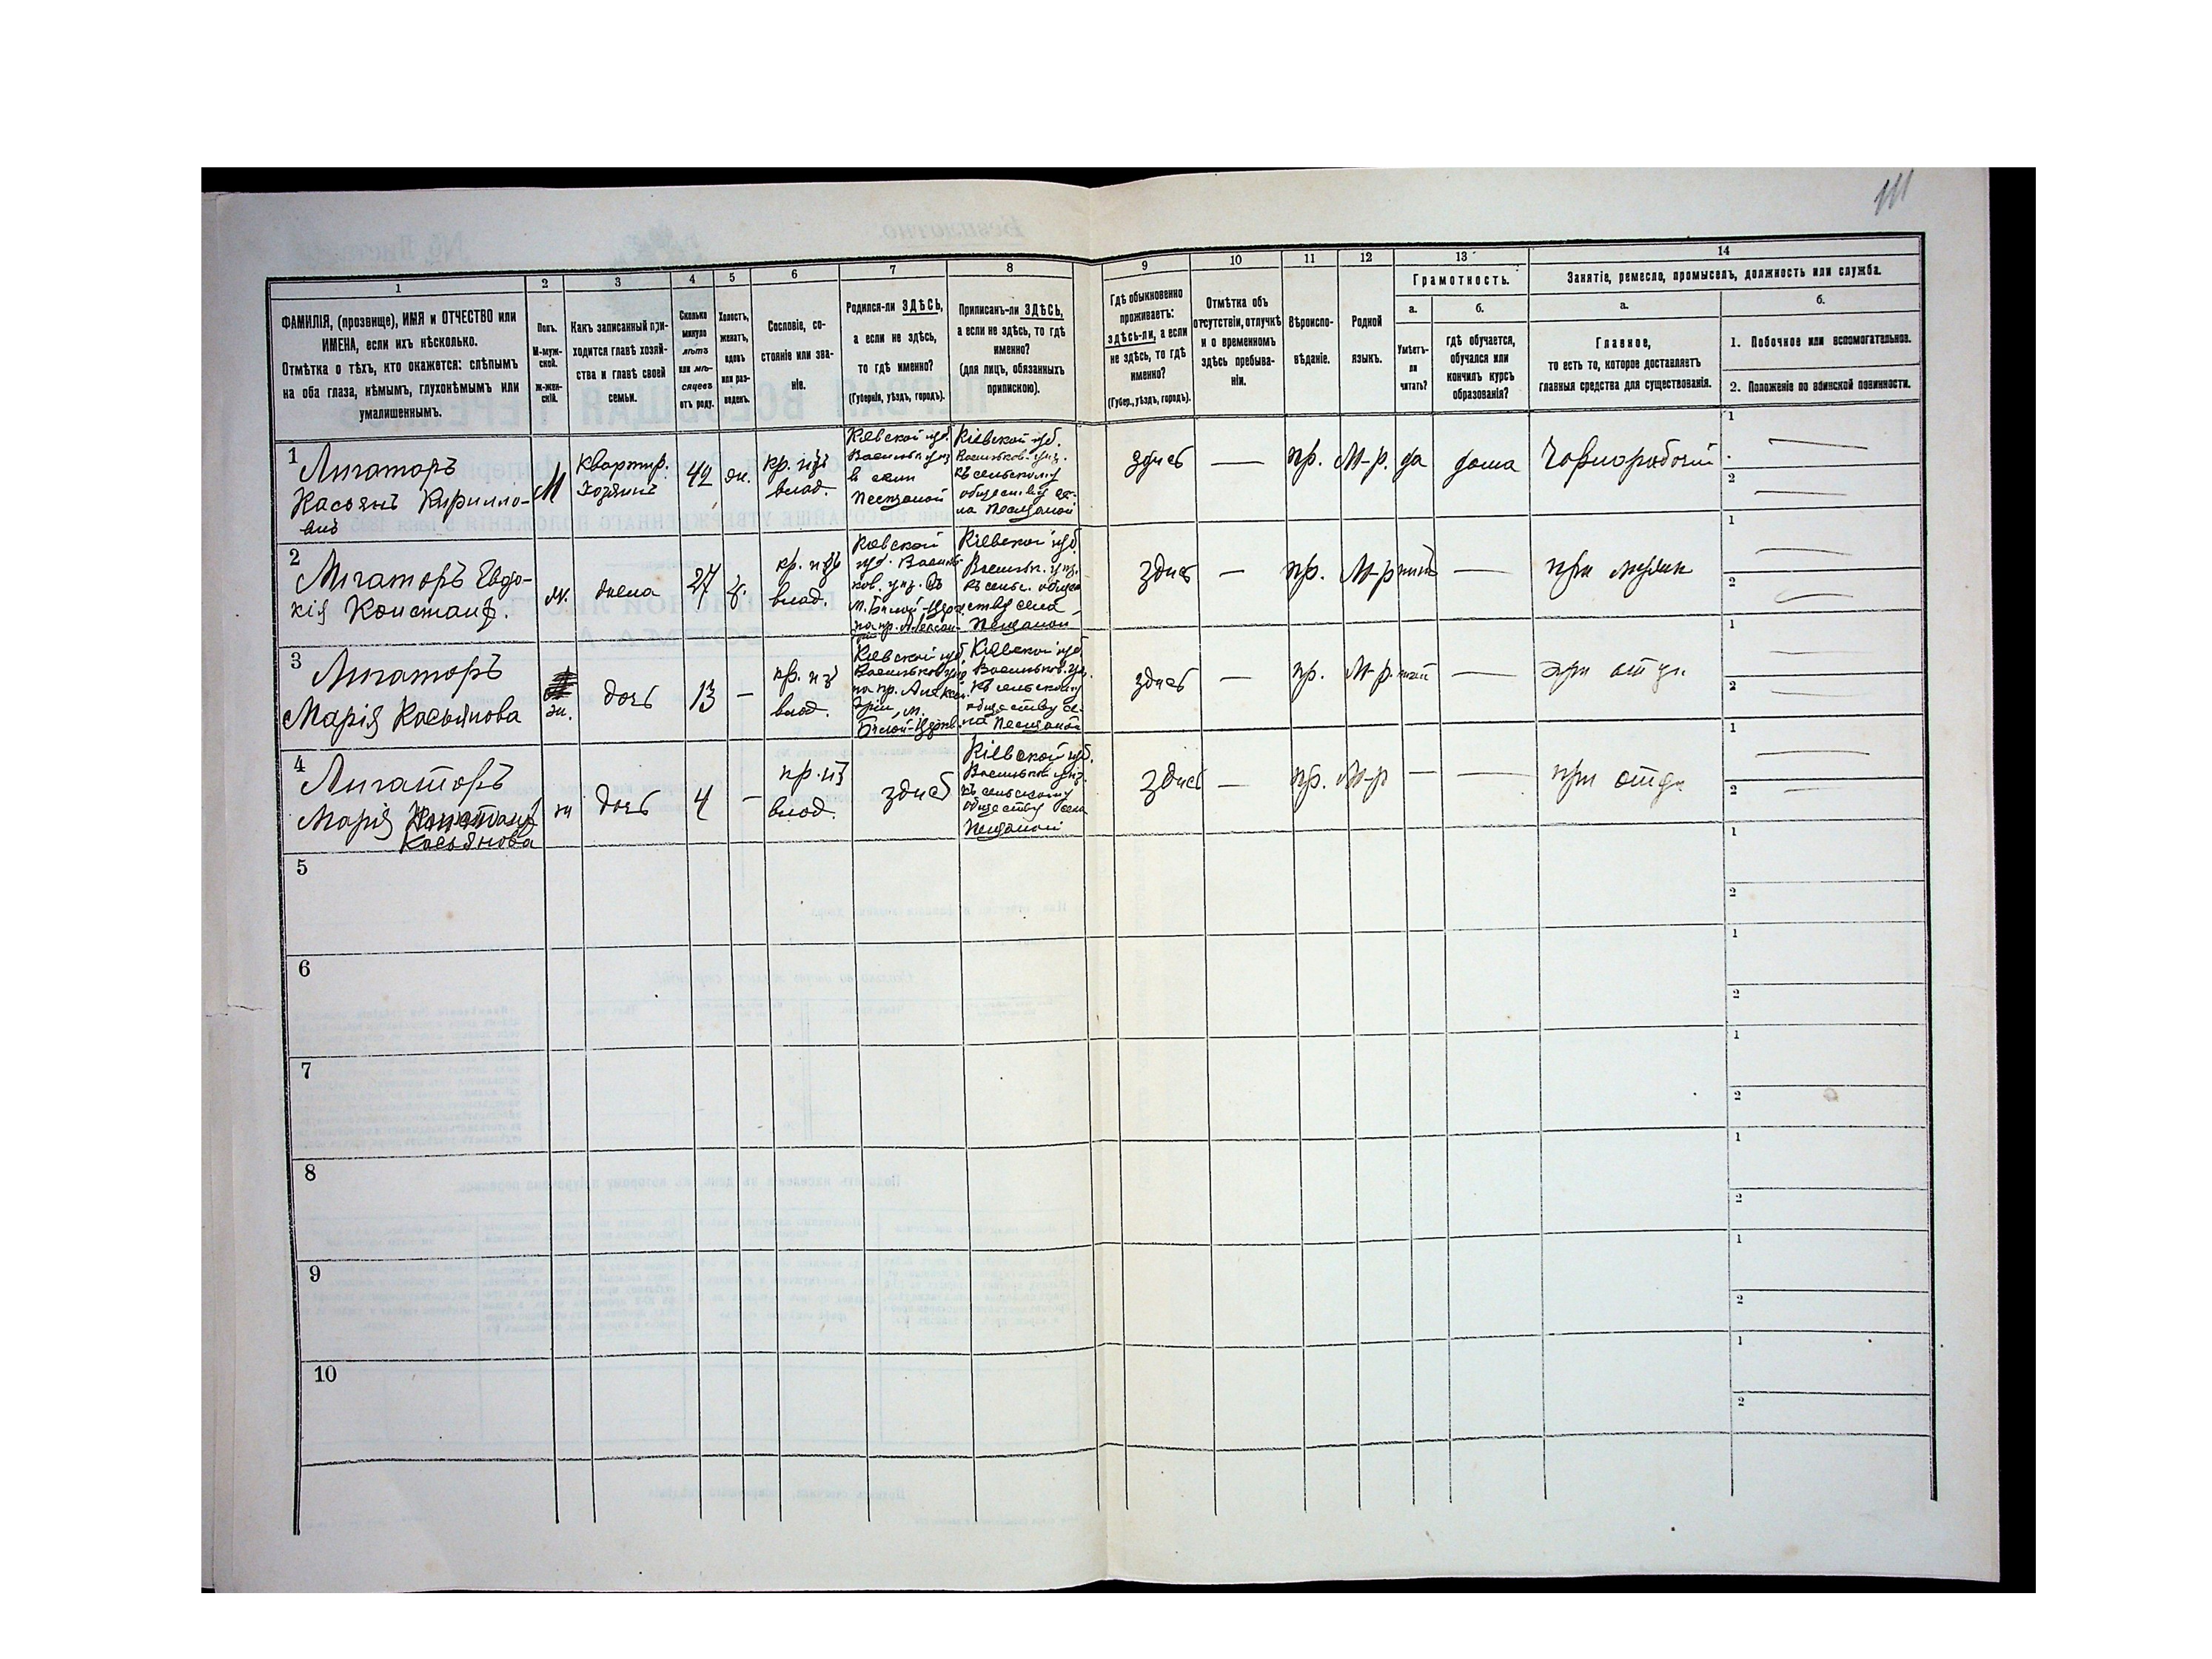 111
1
2
3
4
5
6
7
8
9
10
11
12
13
14
ФАМИЛІЯ, (прозвище), ИМЯ и ОТЧЕСТВО или
ИМЕНА, если ихъ нѣсколько.
Отмѣтка о тѣхъ, кто окажется: слѣпымъ
на оба глаза, нѣмымъ, глухонѣмымъ или
умалишеннымъ.
Полъ.
М-муж-
ской.
Ж-жен-
скій.
Какъ записанный при-
ходится главѣ хозяй-
ства и главѣ своей
семьи.
Сколько
минуло
лѣтъ
или мѣ-
сяцевъ
отъ роду.
Холостъ,
женатъ,
вдовъ
или раз-
веденъ.
Сословіе, со-
стояніе или зва-
ніе.
Родился-ли ЗДѢСЬ,
а если не здѣсь,
то гдѣ именно?
(Губернія, уѣздъ, городъ).
Приписанъ-ли ЗДѢСЬ,
а если не здѣсь, то гдѣ
именно?
(для лицъ, обязанныхъ
припискою).
Гдѣ обыкновенно
проживаетъ:
здѣсь-ли, а если
не здѣсь, то гдѣ
именно?
(Губер., уѣздъ, городъ).
Отмѣтка объ
отсутствіи, отлучкѣ
и о временномъ
здѣсь пребыва-
ніи.
Вѣроиспо-
вѣданіе.
Родной
языкъ.
Грамотность.
а.
Умѣетъ-
ли
читать?
б.
гдѣ обучается,
обучался или
кончилъ курсъ
образованія?
Занятіе, ремесло, промыселъ, должность или служба.
а.
Главное,
то есть то, которое доставляетъ
главныя средства для существованія.
б.
1. Побочное или вспомогательное.
2. Положеніе по воинской повинности.
1
Лигаторъ
Касьянъ Кирилло-
вичъ
М
Квартир.
Хозяинъ
42
жи.
кр. изъ
влад.
Кіевской губ.
Васильк. уѣз
в селѣ
Песчаной
Кіевской губ.
Васильков. уѣз.
къ сельскому
обществу се-
ла Песчаной
здѣсь
—
пр.
М-р.
да
дома
Чорнорабочій
1
2
2
Лигаторъ Евдо-
кія Констант.
жена
27
з.
кр. изъ
влад.
Кіевской
губ. Василь-
ков. уѣз. въ
м. Бѣлой-Церк.
Кіевской губ.
Васильк. уѣз.
къ сельс. обще-
ству села
Песчаной
здѣсь
—
пр.
М-р
нѣтъ
—
при мужѣ
1
2
3
Лигаторъ
Марія Касьянова
ж.
дочь
13
—
кр. изъ
влад.
Кіевской губ.
м.
Бѣлой-Церкв.
Кіевской губ.
Васильков. уѣз.
къ сельскому
обществу се-
ла Песчаной
здѣсь
пр.
М-р.
нѣтъ
—
при отцѣ
1
2
4
Лигаторъ
Марія
Касьянова
ж
дочь
4
—
кр. изъ
влад.
здѣсь
Кіевской губ.
Васильков уѣз.
къ сельскому
обществу села
Песчаной
здѣсь
—
пр.
М-р
—
—
при отцѣ
1
2
5
1
2
6
1
2
7
1
2
8
1
2
9
1
2
10
1
2